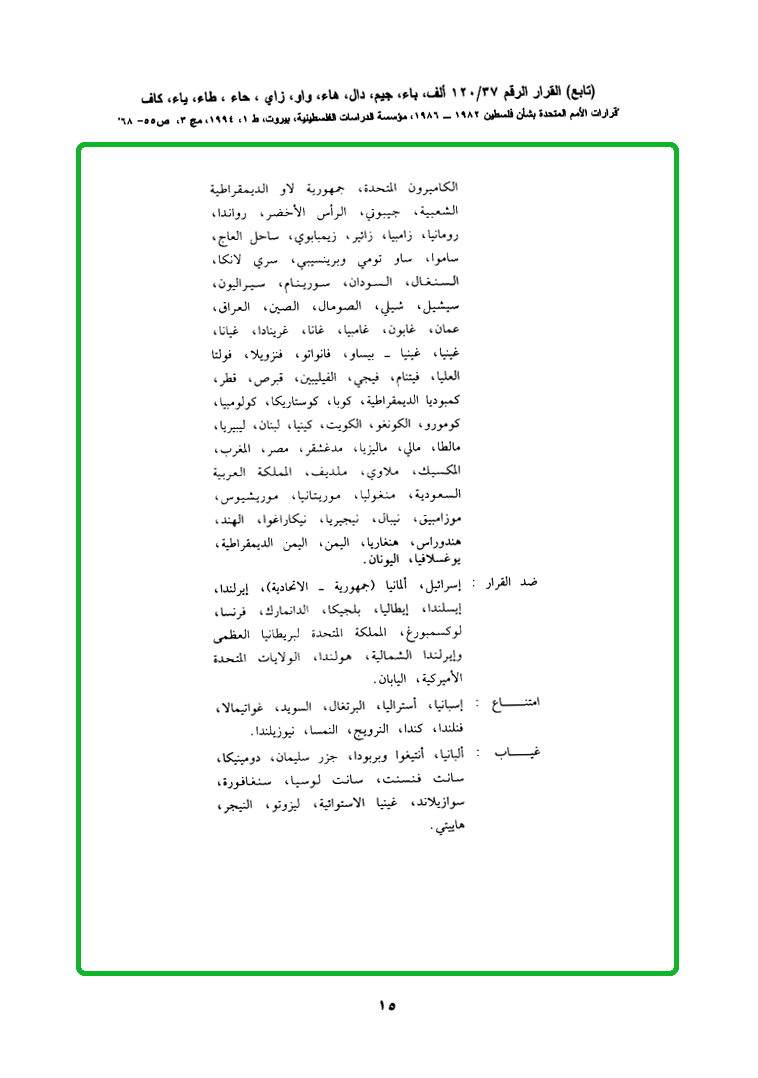 (تابع) القرار الرقم ١٢٠/٣٧ ألف، باء، جيم، دال، هاء، واو، زاي ، حاء ، طاء، ياء، كاف
"قرارات الأمم المتحدة بشأن فلسطين ١٩٨٢ ــ ١٩٨٦، مؤسسة الدراسات الفلسطينية، بيروت، ط ١، ١٩٩٤، مج ٣، ص٥٥- ٦٨"
الكاميرون المتحدة، جمهورية لاو الديمقراطية
الشعبية، جيبوتي، الرأس الأخضر، رواندا،
رومانيا، زامبيا، زائير، زيمبابوي، ساحل العاج،
ساموا، ساو تومي وبرينسيبي، سري لانكا،
السنغال، السودان، سورينام، سيراليون،
سيشيل، شيلي، الصومال، الصين، العراق،
عمان، غابون، غامبيا، غانا، غرينادا، غيانا،
غينيا، غينيا ــ بيساو، فانواتو، فنزويلا، فولتا
العليا، فيتنام، فيجي، الفيليبين، قبرص، قطر،
كمبوديا الديمقراطية، كوبا، كوستاريكا، كولومبيا،
كومورو، الكونغو، الكويت، كينيا، لبنان، ليبيريا،
مالطا، مالي، ماليزيا، مدغشقر، مصر، المغرب،
المكسيك، ملاوي، ملديف، المملكة العربية
السعودية، منغوليا، موريتانيا، موريشيوس،
موزامبيق، نيبال، نيجيريا، نيكاراغوا، الهند،
هندوراس، هنغاريا، اليمن، اليمن الديمقراطية،
يوغسلافيا، اليونان.
ضد القرار : إسرائيل، ألمانيا (جمهورية ــ الاتحادية)، إيرلندا،
إيسلندا، إيطاليا، بلجيكا، الدانمارك، فرنسا،
لوكسمبورغ، المملكة المتحدة لبريطانيا العظمى
وإيرلندا الشمالية، هولندا، الولايات المتحدة
الأميركية، اليابان.
امتنـــــاع : إسبانيا، أستراليا، البرتغال، السويد، غواتيمالا،
فنلندا، كندا، النرويج، النمسا، نيوزيلندا.
غيـــــاب : ألبانيا، أنتيغوا وبربودا، جزر سليمان، دومينيكا،
سانت فنسنت، سانت لوسيا، سنغافورة،
سوازيلاند، غينيا الاستوائية، ليزوتو، النيجر،
هاييتي.
١٥